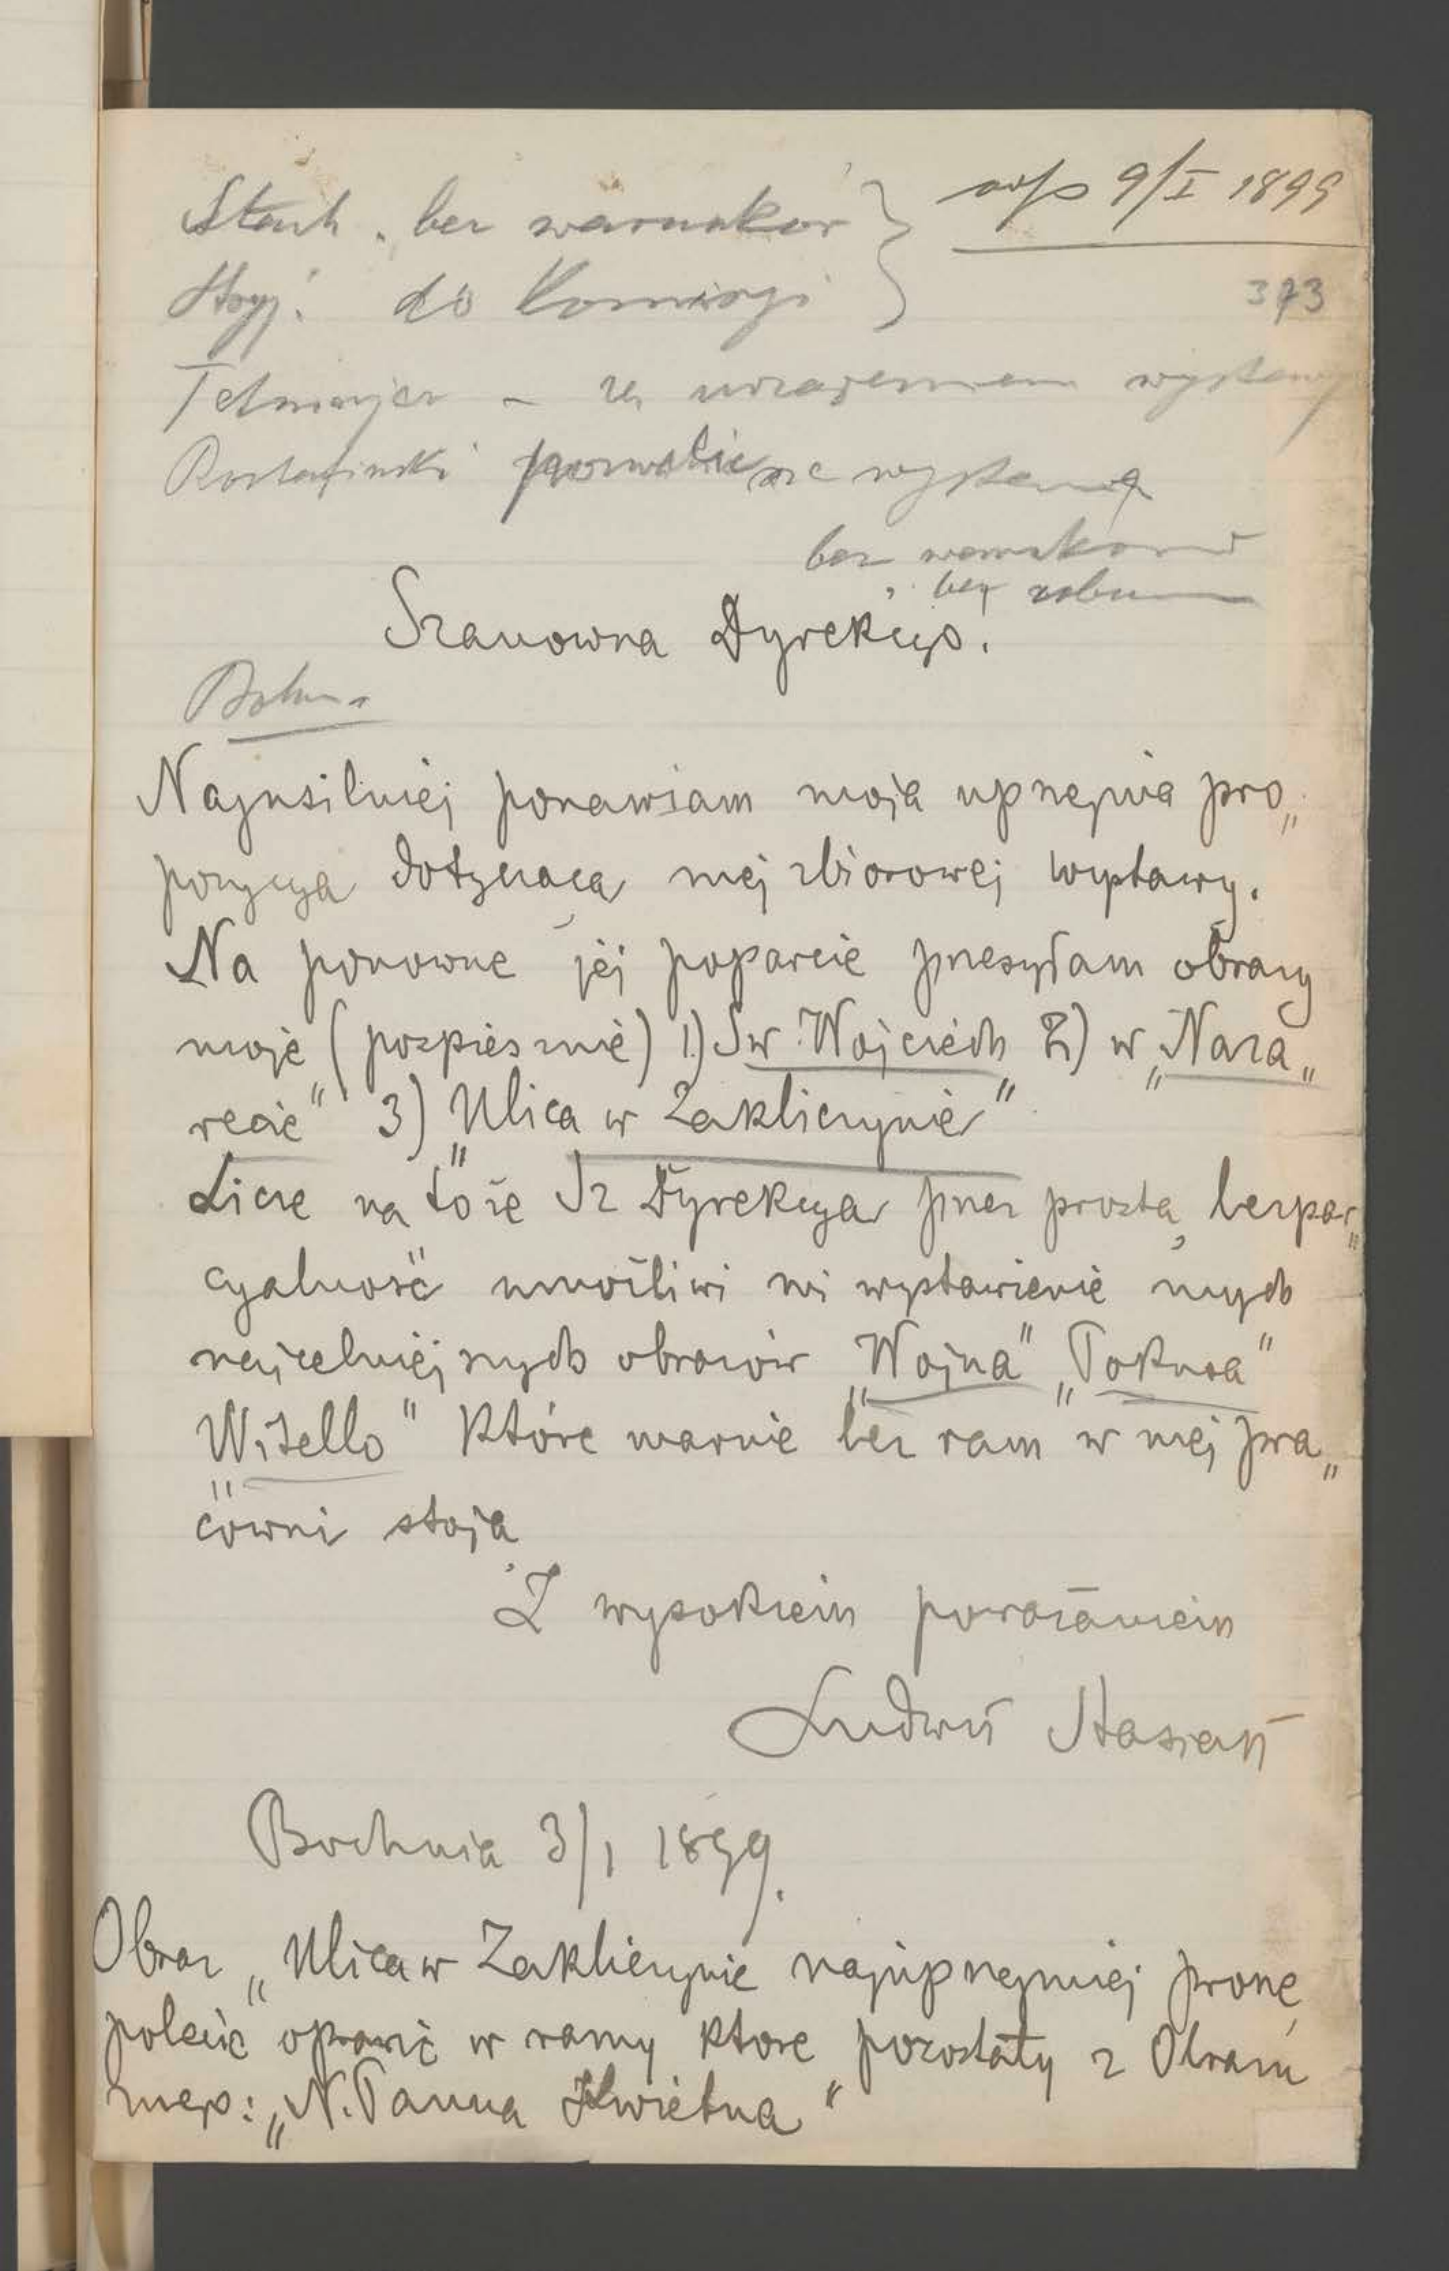 odp 9/I 1899
Stach. bez warunków
Stryj. do Komisyi
373
Tetmajer – za urządzeniem wystawy
Rostafiński pozwolić na wystawę
bez warunków
bez
Szanowna Dyrekcyo!
Najusilniej ponawiam moją uprzejmą pro„
pozycyą dotyczącą mej zbiorowej wystawy.
Na ponowne jej poparcie przesyłam obrazy
moje (pospiesznie) 1) Sw. Wojciech 2) w „Naza„
recie" 3) „Ulica w Zakliczynie"
Liczę na to że Sz Dyrekcya przez prostą bezpar„
cyalność umożliwi mi wystawienie mych
najcelniejszych obrazów „Wojna" „Pokusa"
„Witello" które marnie bez ram w mej pra„
cowni stoją
Z wysokiem poważaniem
Ludwik Stasiak
Bochnia 3/1 1899.
Obraz „Ulica w Zakliczynie najuprzejmiej proszę
polecić oprawić w ramy które pozostały z Obrazu
mego: „N. Panna Kwietna"